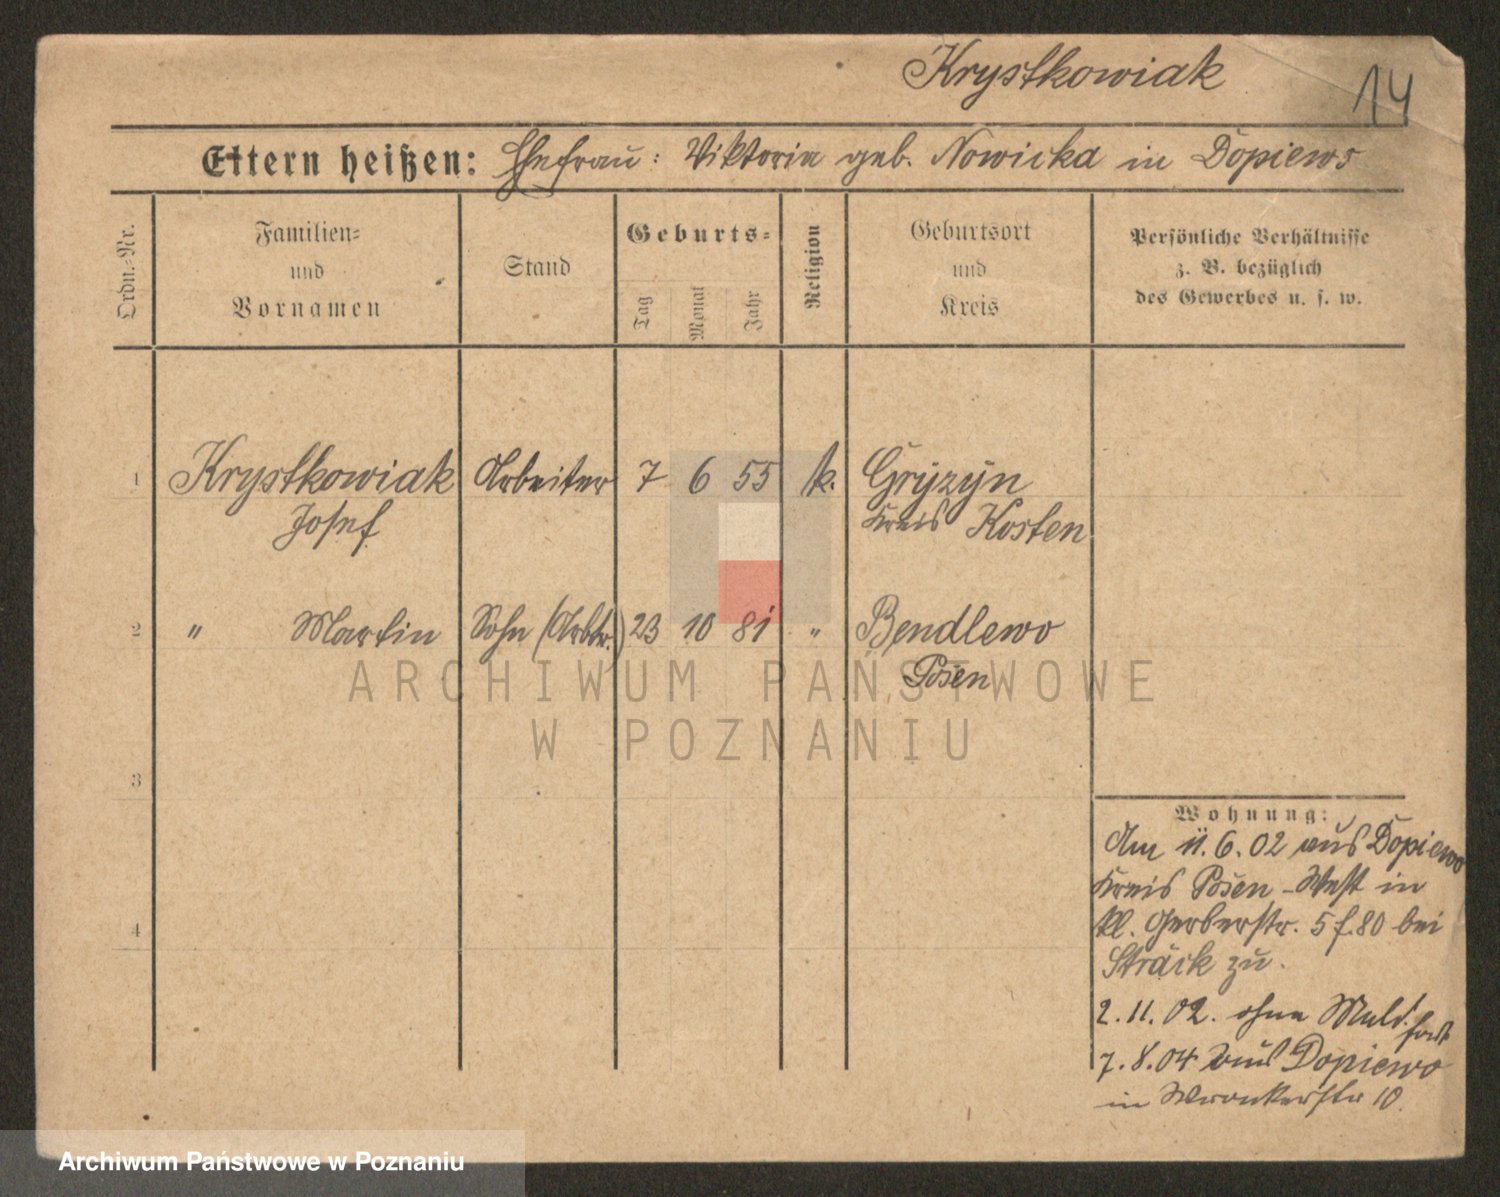 Krystkowiak
14
Eltern heißen: Ehefrau: Viktoria geb. Nowicka in Dopiewo
Ordn.-Nr.
Familien-
und
Vornamen
Stand
Geburts-
Tag
Monat
Jahr
Religion
Geburtsort
und
Kreis
Persönliche Verhältnisse
z. B. bezüglich
des Gewerbes u. s. w.
1 Krystkowiak Arbeiter 7 6 55 k. Gryzyn
Josef Kreis Kosten
2 " Martin Sohn (Arbtr.) 23 10 81 " Bendlewo
Posen
3
4
Wohnung:
Am 11.6.02 aus Dopiewo
Kreis Posen-West in
kl. Gerberstr. 5 f. 80 bei
Sträck zu.
2.11.02. ohne Meld. fort
7.8.04 aus Dopiewo
in Wronkerstr 10.
ARCHIWUM PAŃSTWOWE
W POZNANIU
Archiwum Państwowe w Poznaniu